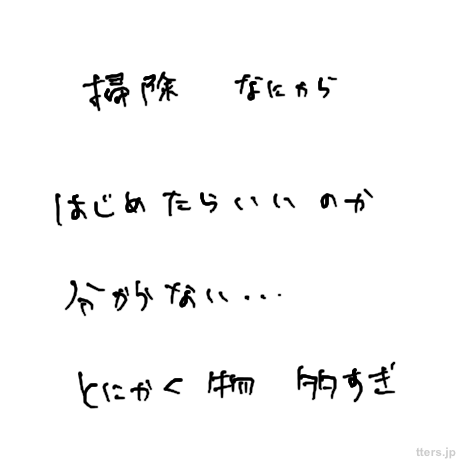 掃除 なにから
はじめたらいいのか
分からない...
とにかく物 多すぎ
tters.jp